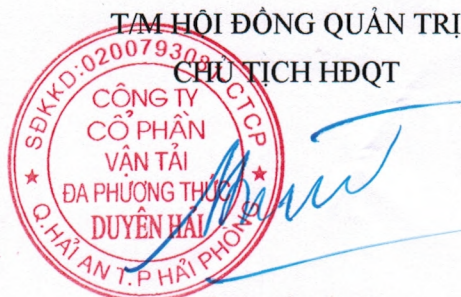 T/M HỘI ĐỒNG QUẢN TRỊ
CHỦ TỊCH HĐQT
SĐKKD:020079308 CTCP
CÔNG TY
CỔ PHẦN
VẬN TẢI
ĐA PHƯƠNG THỨC
DUYÊN HẢI
Q.HẢI AN T.P HẢI PHÒNG